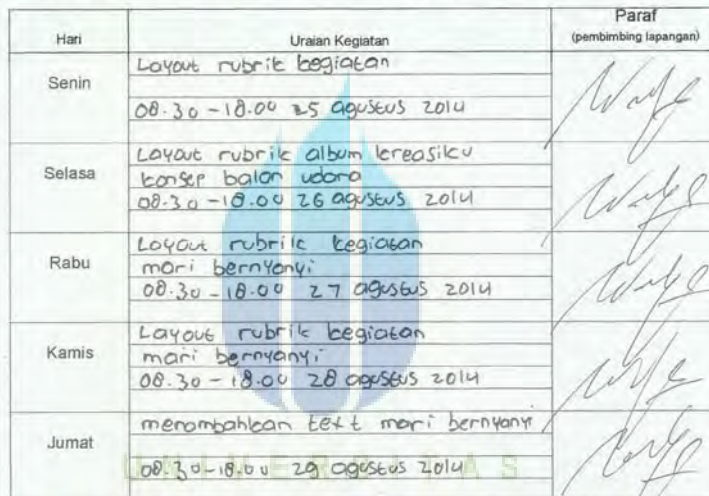 Hari Uraian Kegiatan Paraf
(pembimbing lapangan)
Senin
Layout rubrik kegiatan
08.30 - 18.00 25 agustus 2014
Selasa
Layout rubrik album kreasiku
konsep balon udara
08.30 - 18.00 26 agustus 2014
Rabu
Layout rubrik kegiatan
mari bernyanyi
08.30 - 18.00 27 agustus 2014
Kamis
Layout rubrik kegiatan
mari bernyanyi
08.30 - 18.00 28 agustus 2014
Jumat
menambahkan text mari bernyanyi
08.30 - 18.00 29 agustus 2014
UNIVERSITAS